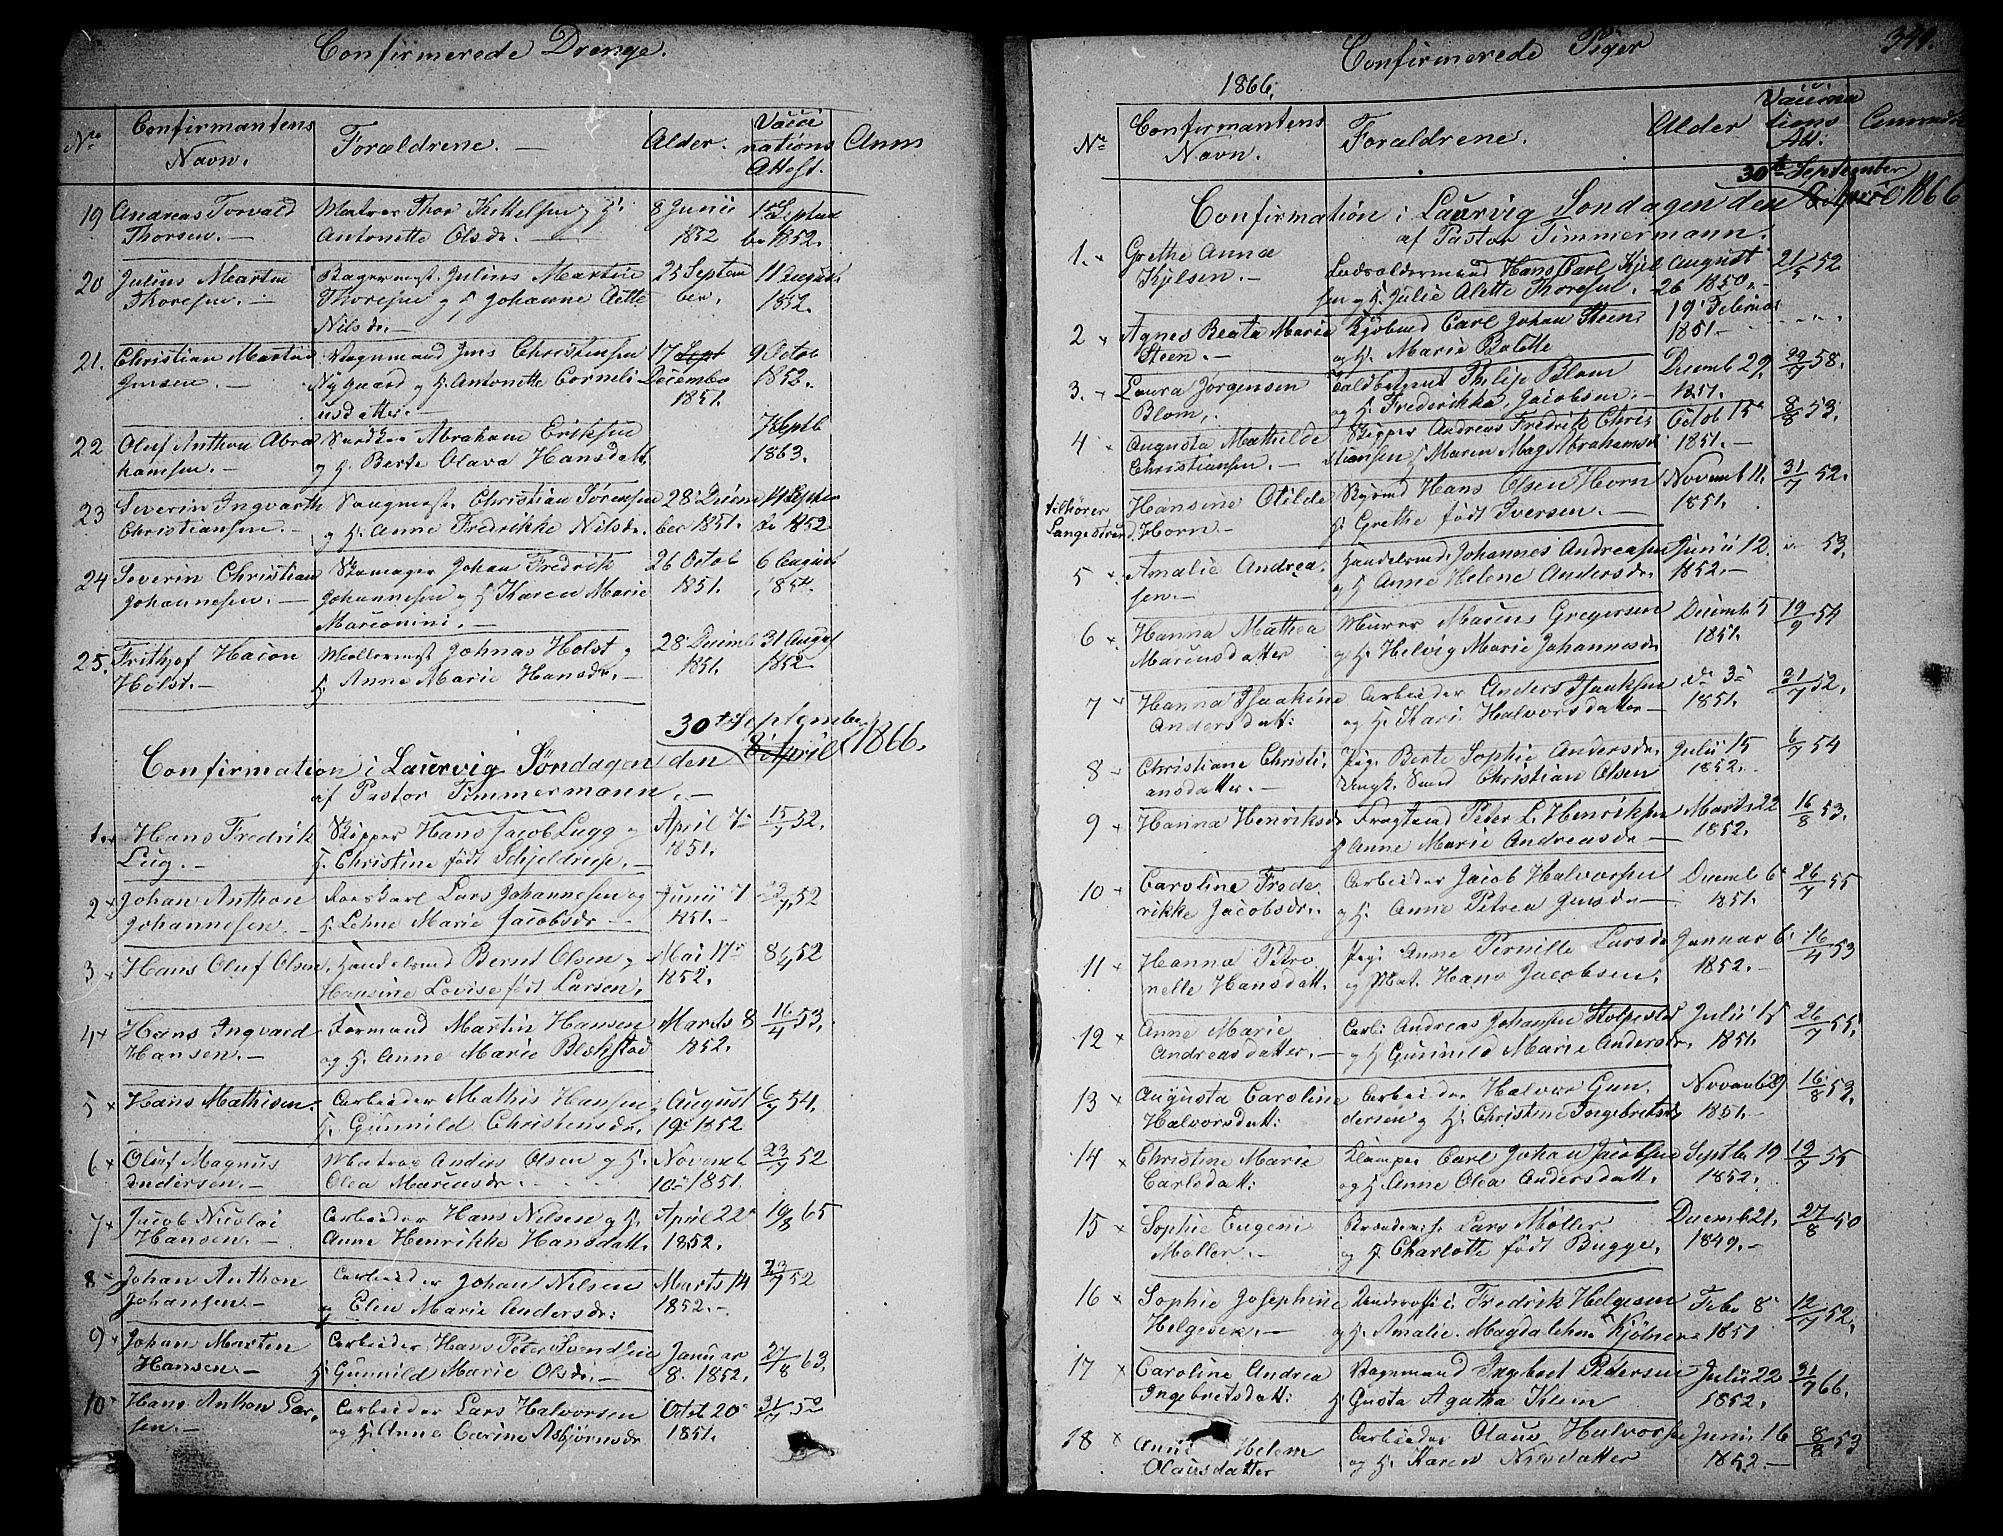 Confirmerede Drenge.
No Confirmantens Navn. Forældrene. Alder. Vacci nations Attest. Anm
19 Andreas Torvald Matros Thor Kittelsen og H: 8 Junii
Thorsen. Antonette Olsdr. 1852 1852.
20 Julius Martin Bagermest. Julius Martin 25 Septem 11 August
Thoresen. Thoresen og H Johanne Aette ber. 1852.
Nilsdr.
21. Christian Martin Vognmand Jens Christensen 17 Sept 9 Octob
Jensen. Nygaard og H. Antonette Corneli Decembr 1852.
usdatter. 1851.
22 Oluf Anthon Abra Abraham Eriksen 7 Septb
hamsen. og H. Berte Olava Hansdatt. 1863.
23 Severin Ingvarth Saugmest. Christian Sørensen 28 Decem
Christiansen. og H. Anne Fredrikke Nilsdr. ber 1851. 1852
24 Severin Christian Johan Fredrik 26 Octob 6 August
Johannesen. Johannesen og H Karen Marie 1851.
25. Frithjof Hacon Møllermest Johnas Holst og 28 Decemb 31 August
Holst. H. Anne Marie Hansdr. 1851. 1852
30te September
Confirmation i Laurvig Søndagen den 8 April 1866.
af Pastor Timmermann.
1. Hans Fredrik Skipper Hans Jacob Lugg og April 7 15/7 52.
Lug. H. Christine født Schjeldrup. 1851.
2 Johan Anthon Lars Johannesen og Junii 7 23/7 52
Johannesen. H. Lehne Marie Jacobsdr 1851.
3 Hans Oluf Olsen, Handelsmd Bernt Olsen og Mai 17 8/4 52
Hansine Lovise født Larsen. 1852.
4 Hans Ingvard Formand Martin Hansen Marts 8 16/4 53.
Hansen. og H. Anne Marie Blekstad 1852.
5 Hans Mathisen. Arbeider Mathis Hansen August 6/7 54.
H. Gunnild Christensdr. 19 1852
6 Oluf Magnus Matros Anders Olsen og H. Novemb 23/7 52
Andersen. Olea Mareusdr. 10 1851.
7 Jacob Nicolai Arbeider Hans Nilsen og H. April 22 19/8 65
Hansen. Anne Henrikke Hansdatt. 1852.
8 Johan Anthon Arbeider Johan Nilsen Marts 14 23/7 52
Johansen. og Elen Marie Andersdr: 1852.
9 Johan Marten Arbeider Hans Peter Svendsen Januar 27/8 63.
Hansen. H. Gunnild Marie Olsdr: 8. 1852.
10 Hans Anthon Lar- Arbeider Lars Halvorsen Octob 20 31/7 52
sen. og H. Anne Carine Asbjørnsdr 1851.
Confirmerede Piger 341.
1866.
No Confirmantens Navn. Forældrene. Alder Vaccina tions Att.
30te September
Confirmation i Laurvig Søndagen den 8 April 1866
af Pastor Timmermann.
1. Grethe Anna Lodsoldermand Hans Carl Kjel August 21/5 52.
Kjelsen. sen og H. Julie Alette Thoresen. 26 1850.
2 Agnes Beata Maria Kjøbmd Carl Johan Steen 19 Februar
Steen. og H. Marie Balette 1851.
3. Laura Jørgensen Philip Blom Decemb 29. 29/7 58.
Blom. og H. Frederikke Jacobsen. 1851.
4 Augusta Mathilde Skipper Andreas Fredrik Chris Octob 15 8/8 53.
Christiansen. tiansen H Maren Mag Abrahamsd 1851.
tilhører Langestrand. Hansine Otilde Hans Olsen Horn Novemb 11. 31/7 52.
Horn H. Grethe født Iversen. 1851.
5 Amalie Andrea- Handelsmd. Johannes Andreasen Junii 12. 53.
sen. og H Anne Helene Andersdr. 1852.
6 Hanna Mathea Murer Marcus Gregersen Decemb 5 19/9 54
Marcusdatter og H. Helvig Marie Johannesdr 1851.
7 Hanna Isaakine Arbeider Anders Isaaksen do 3 31/7 52.
Andersdatt: og H. Kari Halvorsdatter 1851.
8 Christiane Christi- Pige Berte Sophie Andersdr. Julii 15 6/7 54
ansdatter. Christian Olsen 1852.
9 Hanna Henriksdr Fragtemd Peder L. Henriksen Marts 22 16/8 53.
H Anne Marie Andreasdr 1852.
10 Caroline Frede- Arbeider Jacob Halvorsen Decemb 6 26/7 55
rikke Jacobsdr. og H. Anne Petrea Jensdr 1851.
11 Hanna Petro Pige Anne Pernille Larsdr Januar 6. 16/4 53
nelle Hansdatt. og Mat. Hans Jacobsen. 1852.
12 Anne Marie Arb: Andreas Johansen Stolpestad Julii 15 26/7 55.
Andreasdatter. og H Gunnild Marie Andersdr. 1851.
13 Augusta Caroline Arbeider Halvor Gun Novemb 29 16/8 53.
Halvorsdatt: dersen og H. Christine Ingebretsdr 1851.
14 Christine Marie Carl Johan Jacobsen Septbr 19 19/7 55
Carlsdatt: og H. Anne Olea Andersdatt. 1852.
15 Sophie Eugeni Lars Møller Decemb 21. 27/8 50
Møller. og H. Charlotte født Bugge. 1849.
16 Sophie Josephine Fredrik Helgesen Febr 8 12/7 52.
Helgesen. og H. Amalie Magdalehne Kjølner 1851
17 Caroline Andrea Vognmand Ingebret Pedersen Julii 22 31/7 66.
Ingebretsdatt: H. Gusta Agatha Klem 1852.
18 Anne Helem Arbeider Olaus Halvorsen Junii 16 8/8 53
Olausdatter og H. Karen 1852.